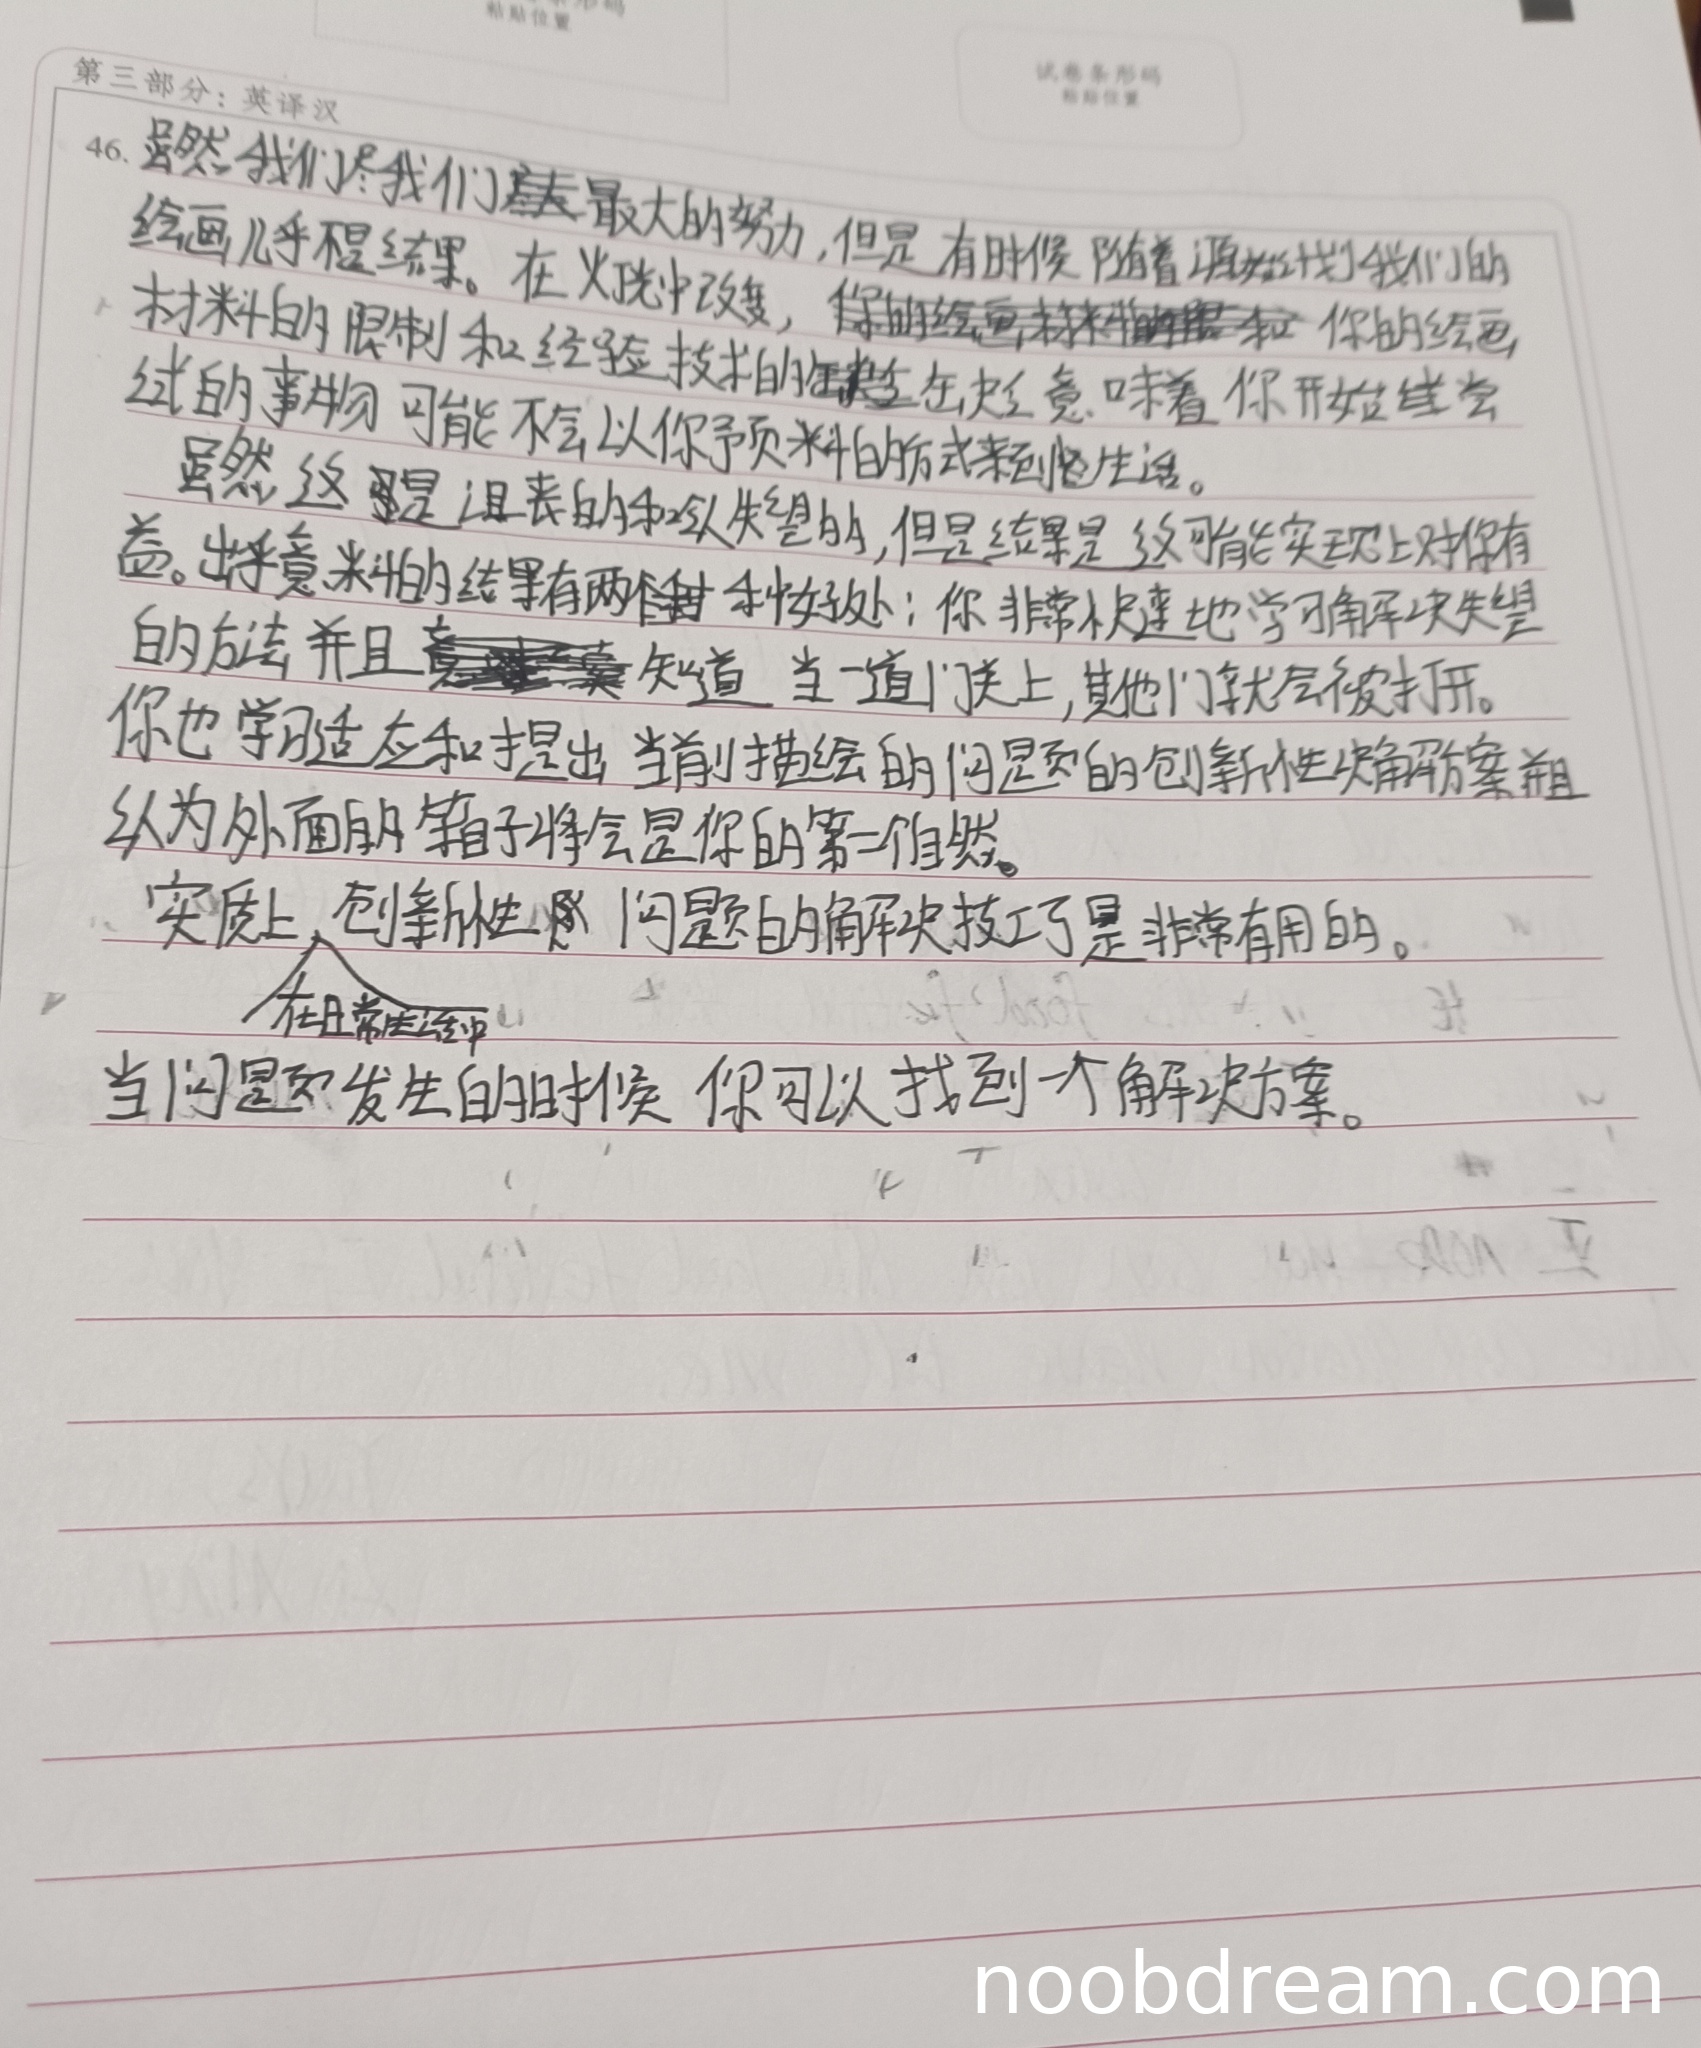 粘贴位置
试卷条形码
粘贴位置
第三部分：英译汉
46. 虽然我们尽我们最大的努力,但是有时候随着源始计划我们的
绘画几乎不是结果。在火恍中改变, 你的绘画
材料的限制和经验技术的在 意味着你开始 尝
试的事物可能不会以你预料的方式来到 生活。
虽然这 是沮丧的和 失望的,但是结果是这可能实现上对你有
益。出乎意料的结果有两 种好处：你非常快速地学习解决失望
的方法并且 知道 当一道门关上,其他门就会被打开。
你也学习适应和提出当前描绘的问题的创新性决解方案并且
认为外面的箱子将会是你的第二个自然。
实质上、创新性 问题的解决技巧是非常有用的。
在日常生活中
当问题发生的时候 你可以找到一个解决方案。
noobdream.com